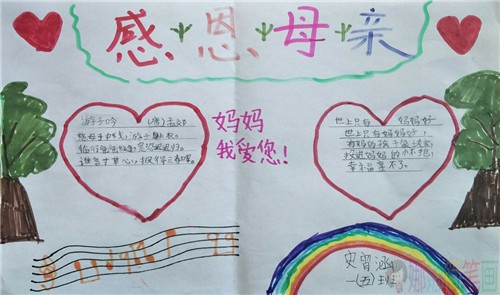 感恩母亲
游子吟 (唐)孟郊
慈母手中线，游子身上衣。
临行密密缝，意恐迟迟归。
谁言寸草心，报得三春晖。
妈妈
我爱您！
世上只有妈妈好
世上只有妈妈好，
有妈的孩子像块宝，
投进妈妈的怀抱，
幸福享不了。
一(五)班